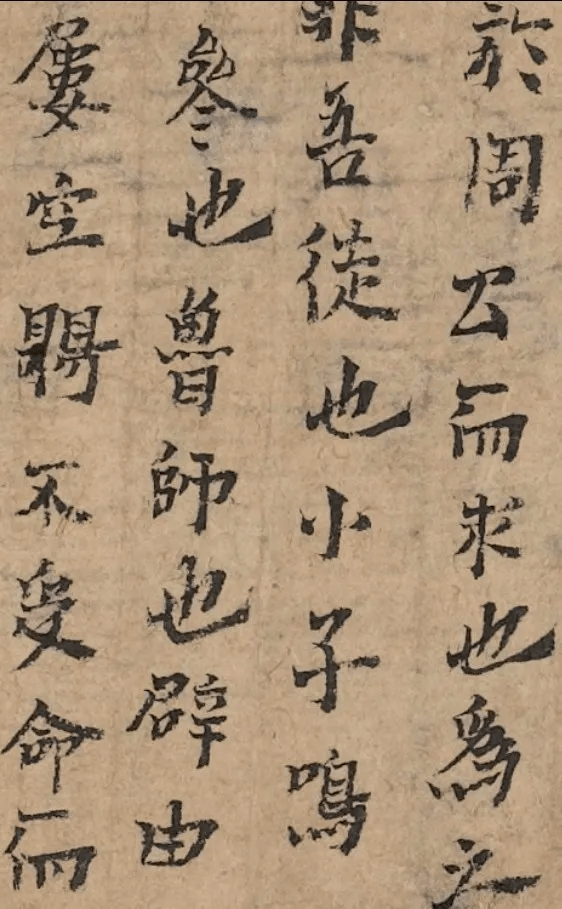 於周公而求也爲之
非吾徒也小子鳴
參也魯師也辟由
屢空賜不受命而